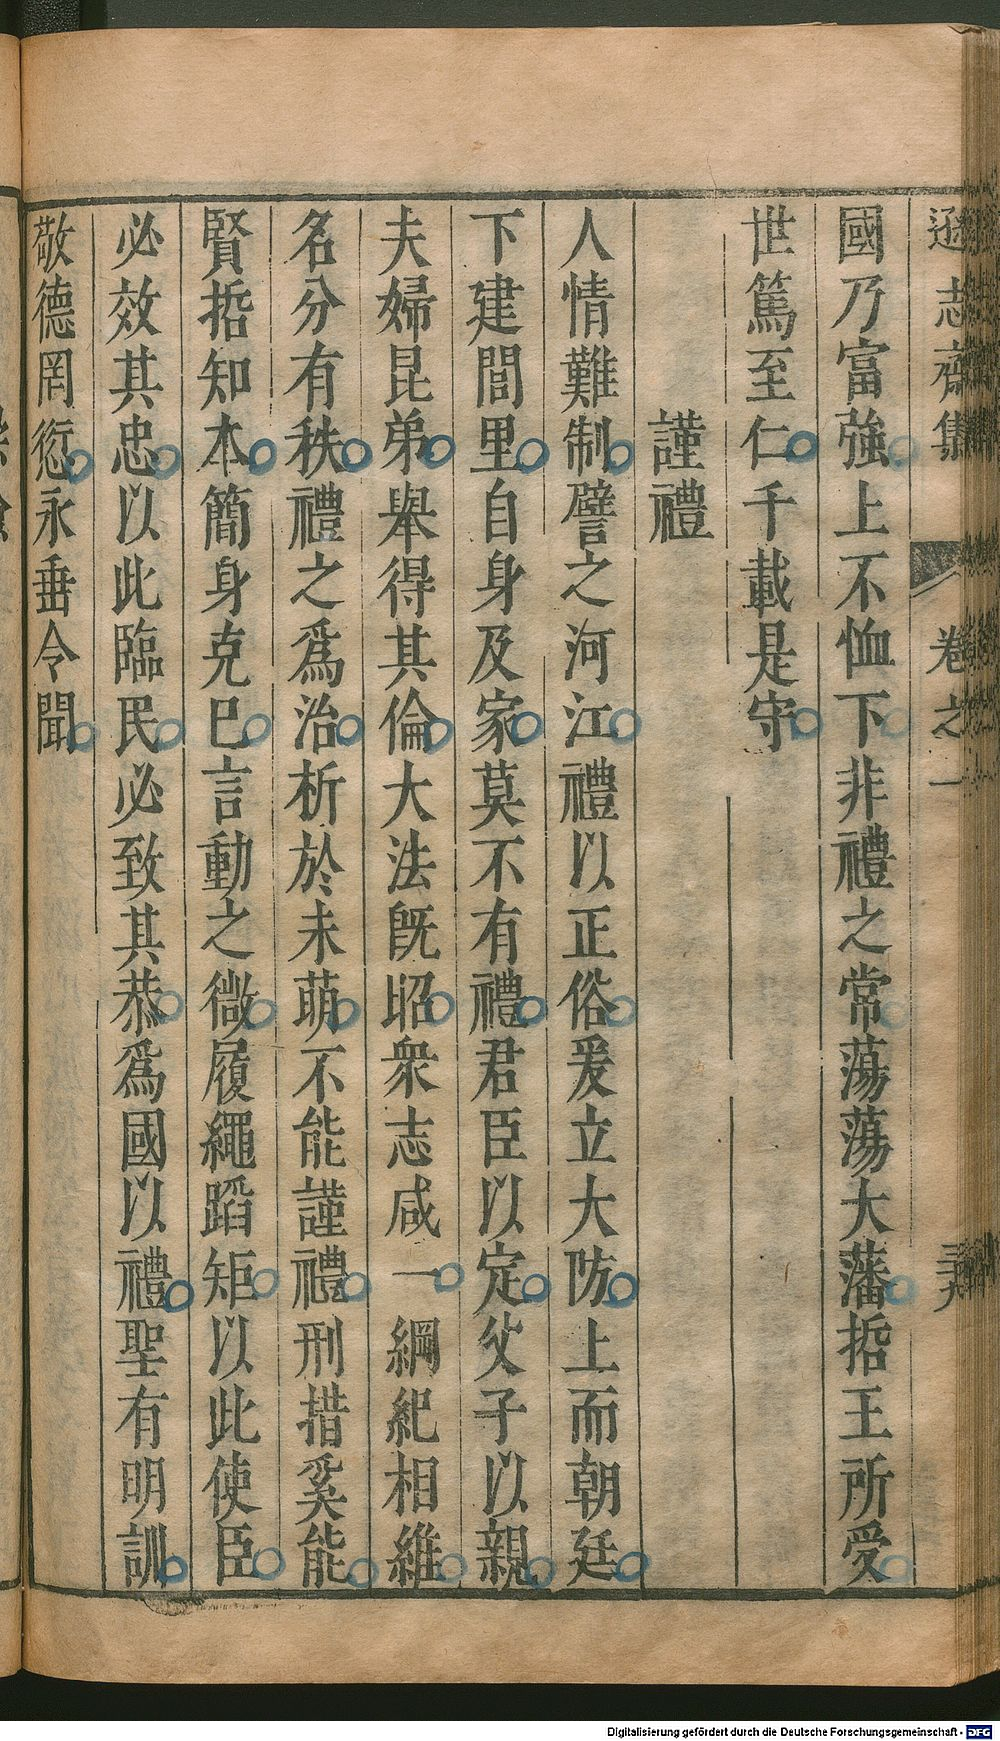 遜志齋集 卷之一
國乃富強上不恤下非禮之常蕩蕩大藩哲王所受
世篤至仁千載是守
謹禮
人情難制譬之河江禮以正俗爰立大防上而朝廷
下建閭里自身及家莫不有禮君臣以定父子以親
夫婦昆弟舉得其倫大法既昭衆志咸一綱紀相維
名分有秩禮之爲治析於未萌不能謹禮刑措奚能
賢哲知本簡身克已言動之微履繩蹈矩以此使臣
必效其忠以此臨民必致其恭爲國以禮聖有明訓
敬德罔愆永垂令聞
Digitalisierung gefördert durch die Deutsche Forschungsgemeinschaft - DFG